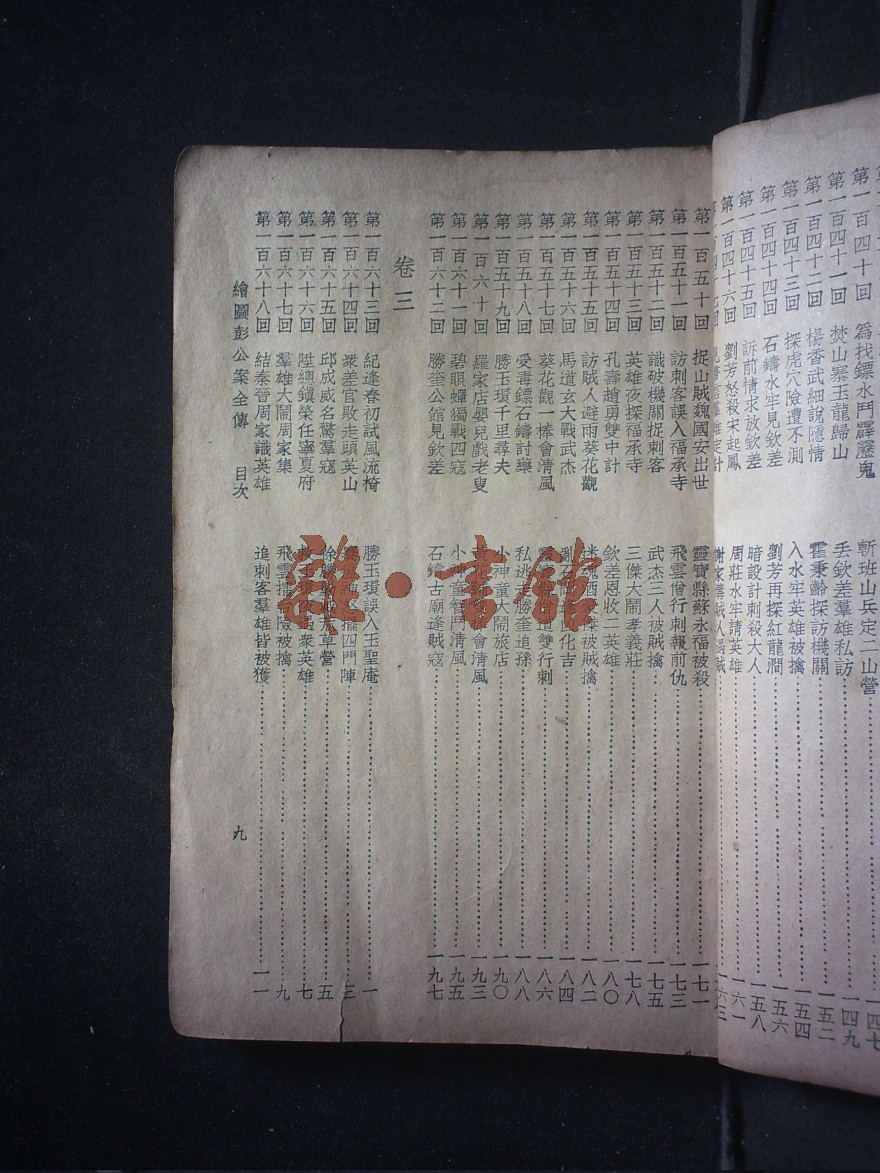 第一百四十回 爲找鏢水鬥霹靂鬼 斬班山兵定二山營 一四七
第一百四十一回 焚山寨玉龍歸山 丢欽差羣雄私訪 一四九
第一百四十二回 楊香武細說隱情 霍秉齡探訪機關 一五二
第一百四十三回 探虎穴險遭不測 入水牢英雄被擒 一五四
第一百四十四回 石鑄水牢見欽差 劉芳再探紅龍澗 一五六
第一百四十五回 訴前情求放欽差 暗設計刺殺大人 一五八
第一百四十六回 劉芳怒殺宋起鳳 周莊水牢請英雄 一六一
一六三
第一百五十回 捉山賊魏國安出世 靈寶縣蘇永福被殺 一七一
第一百五十一回 訪刺客誤入福承寺 飛雲僧行刺報前仇 一七三
第一百五十二回 識破機關捉刺客 武杰三人被賊擒 一七五
第一百五十三回 英雄夜探福承寺 三傑大鬧孝義莊 一七八
第一百五十四回 孔壽趙勇雙中計 欽差恩收二英雄 一八〇
第一百五十五回 訪賊人避雨葵花觀 迷魂酒 被賊擒 一八二
第一百五十六回 馬道玄大戰武杰 亂石 化吉 一八四
第一百五十七回 葵花觀一棒會清風 雙行刺 一八六
第一百五十八回 受毒鏢石鑄討藥 私逃 勝奎追孫 一八八
第一百五十九回 勝玉環千里尋夫 小神童大鬧旅店 一九〇
第一百六十回 羅家店嬰兒戲老叟 會清風 一九三
第一百六十一回 碧眼蟬獨戰四寇 小神童智鬥清風 一九五
第一百六十二回 勝奎公館見欽差 石鑄古廟逢賊寇 一九七
卷三
第一百六十三回 紀逢春初試風流椅 勝玉環誤入玉聖庵 一
第一百六十四回 衆差官敗走頭英山 擺四門陣 三
第一百六十五回 邱成威名驚羣寇 徐勝 草營 五
第一百六十六回 陞總鎭榮任寧夏府 遇衆英雄 七
第一百六十七回 羣雄大鬧周家集 飛雲 險被擒 九
第一百六十八回 結秦晉周家識英雄 追刺客羣雄皆被獲 一一
繪圖彭公案全傳 目次 九
雜·書館